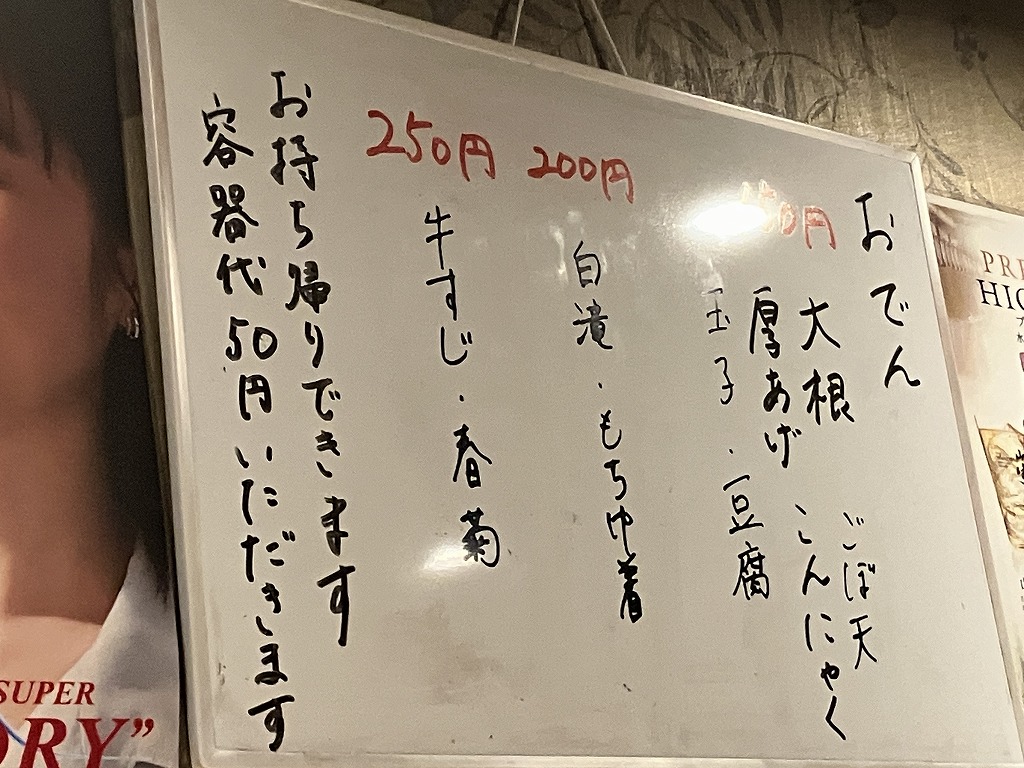 おでん
150円
ごぼ天
大根 こんにゃく
厚あげ
玉子・豆腐
200円
白滝・もち巾着
250円
牛すじ・春菊
お持ち帰りできます
容器代50円いただきます
SUPER
DRY”